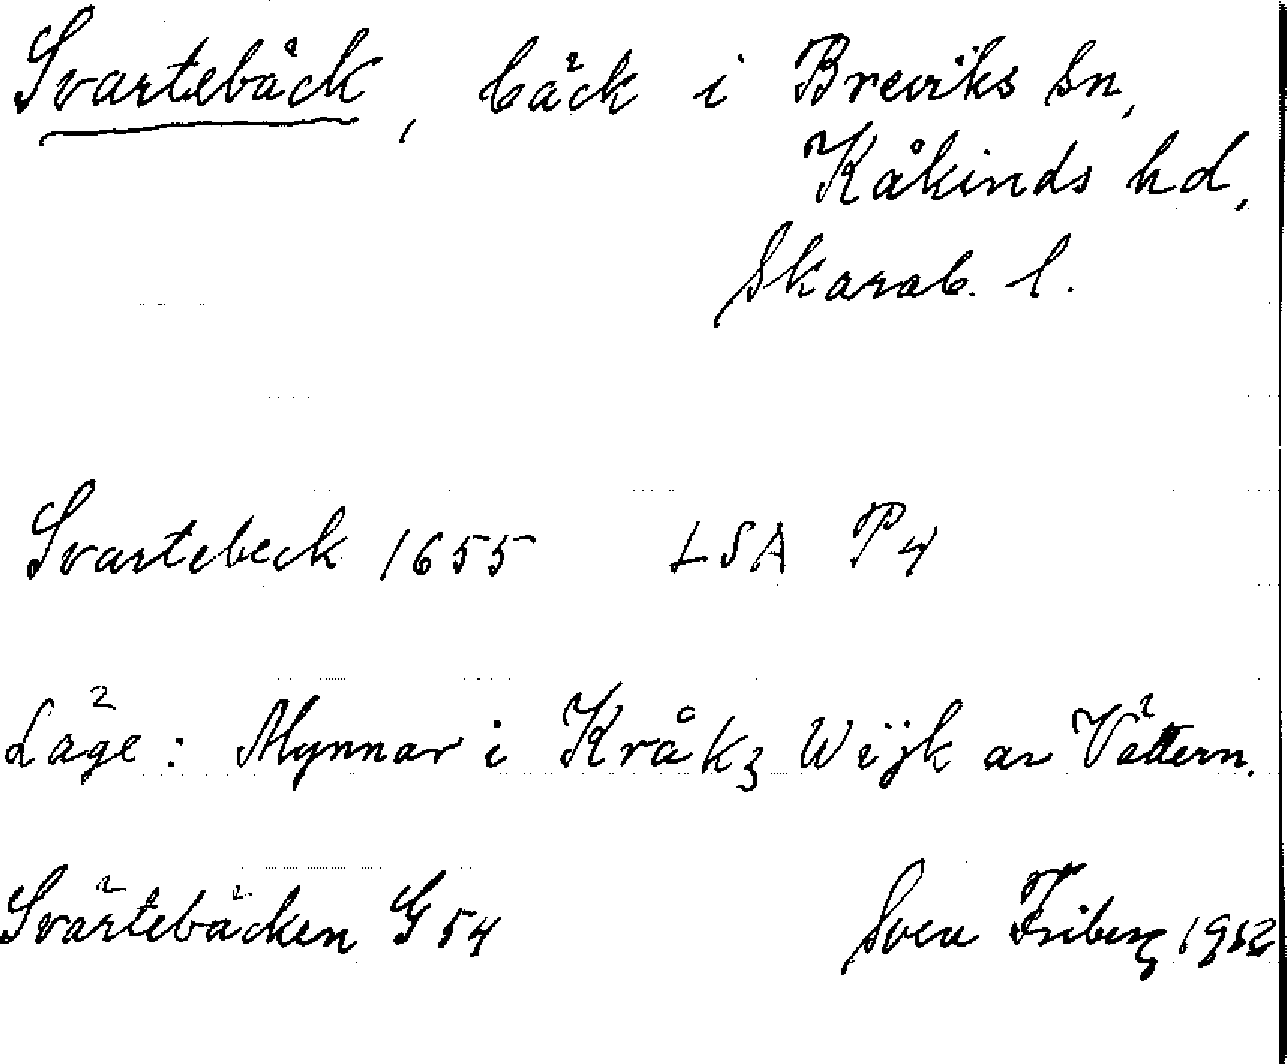 Svartebäck, bäck i Breviks sn,
Kåkinds hd,
Skarab. l.
Svartebeck 1655 LSA P4
Läge: Mynnar i Kråkz Wijk av Vättern.
Svärtebäcken G54 Sven Friberg 1952